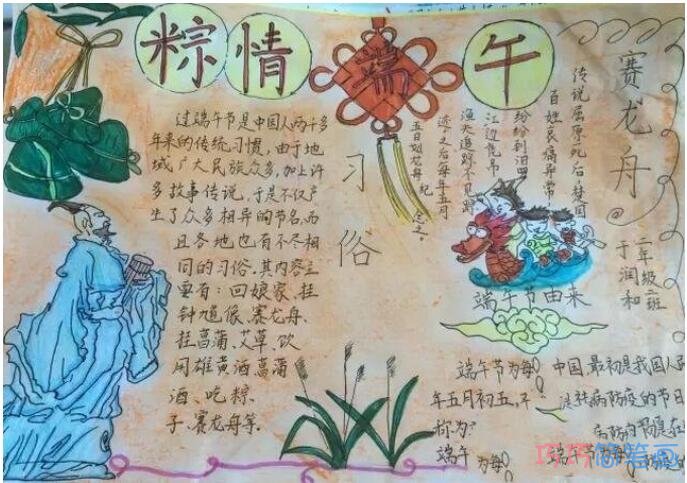 粽情端午
过端午节是中国人两千多
年来的传统习惯,由于地
域广大民族众多,加上许
多故事传说,于是不仅产
生了众多相异的节名,而
且各地也有不尽相
同的习俗.其内容主
要有:回娘家、挂
钟馗像、赛龙舟、
挂菖蒲、艾草、饮
用雄黄酒菖蒲
酒、吃粽
子、赛龙舟等.
习俗
赛龙舟
传说屈原死后楚国
百姓哀痛异常
纷纷到汨罗
江边凭吊
渔夫
迹.之后每年五月
五日划龙舟纪念之。
二年级二班
于润和
端午节由来
端午节为每
年五月初五,不
称为:
端午
为每
中国.最初是我国人民
祛病防疫的节日
端午节
巧巧简笔画